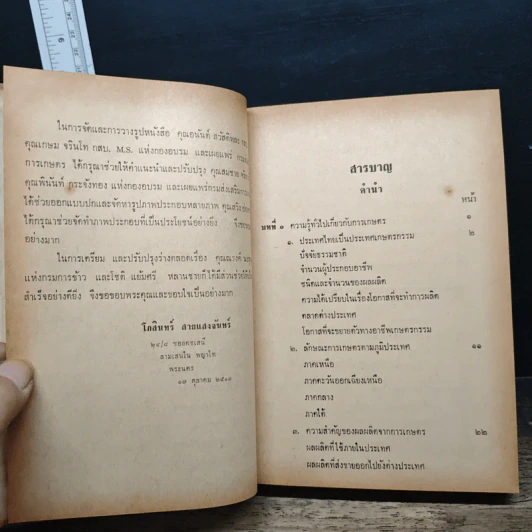 ในการจัดและการวางรูปหนังสือ คุณอนันต์
คุณเกษม จรินโท กสบ. M.S. แห่งกองอบรม และเผยแพร่
การเกษตร ได้กรุณาช่วยให้คำแนะนำและปรับปรุง คุณสมชาย
คุณพินันท์ กระจังทอง แห่งกองอบรม และเผยแพร่กรมส่งเสริมการ
ได้ช่วยออกแบบปกและจัดหารูปภาพประกอบหลายภาพ
ได้กรุณาช่วยจัดทำภาพประกอบที่เป็นประโยชน์อย่างยิ่ง
อย่างมาก
ในการเตรียม และปรับปรุงร่างตลอดเรื่อง
แห่งกรมการข้าว และโชติ แย้มศรี หลานชายก็ได้มีส่วนช่วยให้
สำเร็จอย่างดียิ่ง จึงขอขอบพระคุณและขอบใจเป็นอย่างมาก
โภสินทร์ สายแสงจันทร์
๒๔/๘
สามเสนใน พญาไท
พระนคร
ตุลาคม ๒๕๑๓
๖
สารบาญ
คำนำ
หน้า
บทที่ ๑ ความรู้ทั่วไปเกี่ยวกับการเกษตร ๑
๑. ประเทศไทยเป็นประเทศเกษตรกรรม ๒
ปัจจัยธรรมชาติ
จำนวนผู้ประกอบอาชีพ
ชนิดและจำนวนของผลผลิต
ความได้เปรียบในเรื่องโอกาสที่จะทำการผลิต
ตลาดต่างประเทศ
โอกาสที่จะขยายตัวทางอาชีพเกษตรกรรม
๒. ลักษณะการเกษตรตามภูมิประเทศ ๑๑
ภาคเหนือ
ภาคตะวันออกเฉียงเหนือ
ภาคกลาง
ภาคใต้
๓. ความสำคัญของผลผลิตจากการเกษตร ๒๒
ผลผลิตที่ใช้ภายในประเทศ
ผลผลิตที่ส่งขายออกไปยังต่างประเทศ